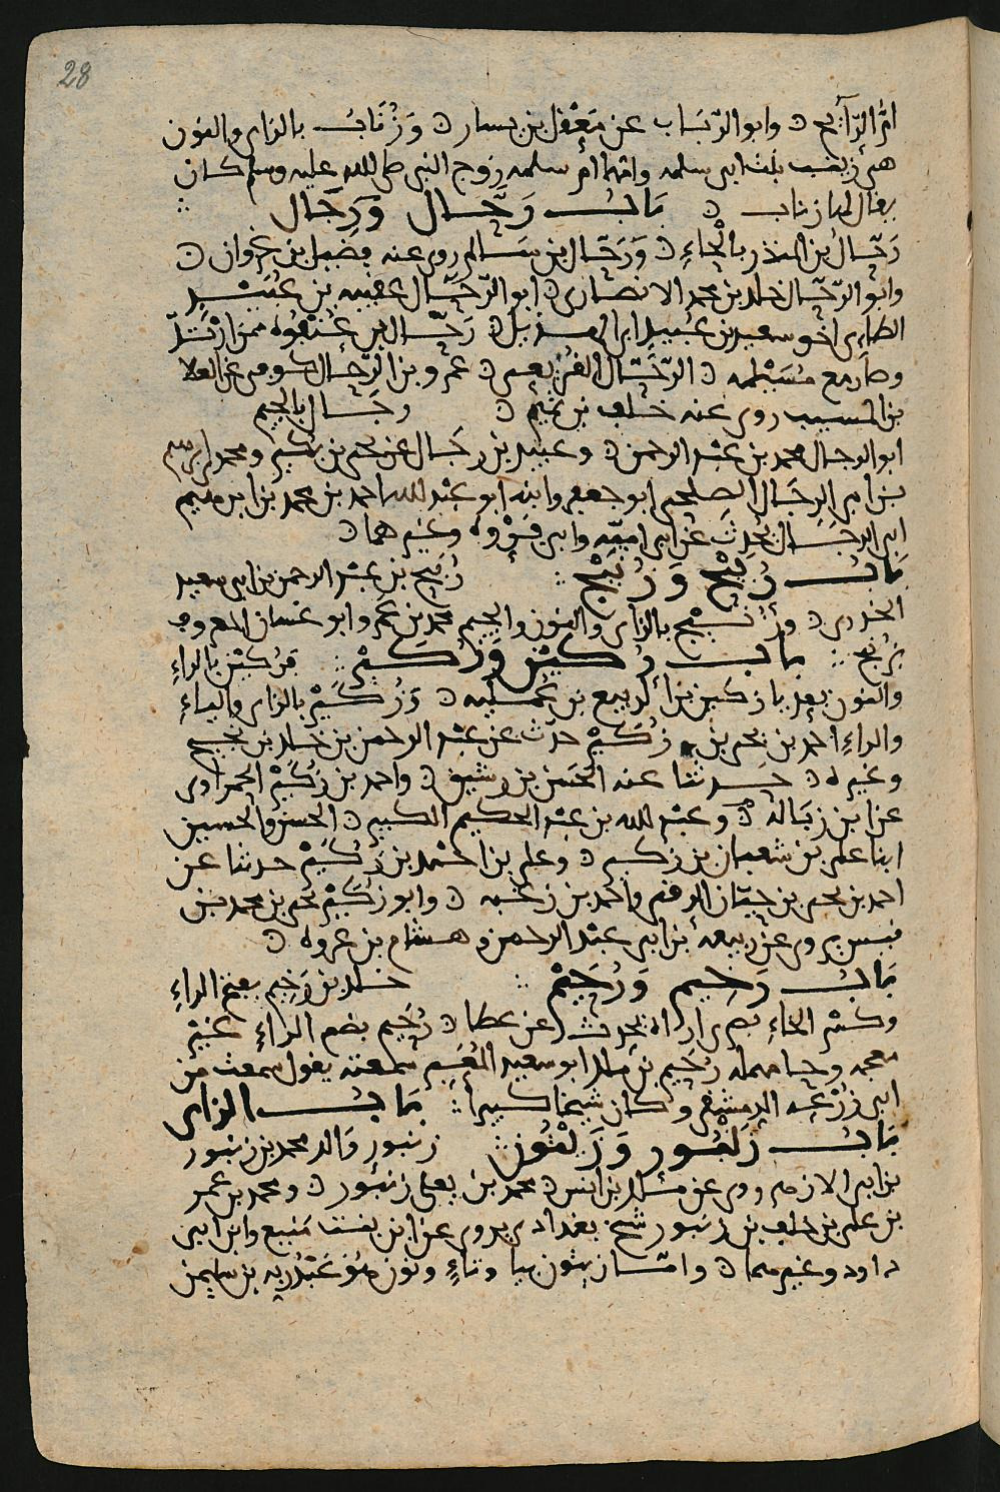 28
امّ الرّآئح ۞ وابو الرّبَاب عن مَعْقل بن يسار ۞ وَزُنَابُ بالزاى والنون
هى زينب بنت ابى سلمه وامّها امّ سلمه زوج النبى صلى الله عليه وسلم كان
يقال لها زناب ۞ بَابُ رَحَّال وَرِجَال
رَحّال بن المنذر بالحَاءِ ۞ وَرَحّال بن سَالم روى عنه فضيل بن غزوان ۞
وابو الرّحّال خلد بن محمد الانصارى ۞ ابو الرّحَّال عقبه بن عُبَيْد
الطاءى اخو سعيد بن عُبيد ابى الهذيل ۞ رَحّال بن عُنْفُوه ممن ارْتَدّ
وصَار مع مُسَيْلمه ۞ الرّحّال الفُرَيعى ۞ عمرو بن الرّحّال كوفى عن العلا
بن المسيب روى عنه خلف بن تميم ۞ رجَال بالجيم
ابو الرجال محمد بن عبْد الرحمن ۞ وعبيد بن رجَال عن يحيى بن بكير ومحمد بن ابرهيم
بن ابى الرجَال الصلحى ابو جعفر وابنه ابو عبْد الله احمد بن محمد بن ابرهيم
ابى الرجَال يحدث عن ابى اميّه وابى فَرْوه وغيرهما ۞
بَابُ رُبَيْح وَزُنَيْج رُبَيح بن عبْد الرحمن بن ابى سعيد
الخدرى ۞ وزُنَيْج بالزاى والنون والجيم محمد بن عمرو ابو غسان المعروف
بزُنيج بَابُ رُكَيْن وَزُكَيْر فرُكَيْن بالراءِ
والنون بعد يا ركين بن الربيع بن عميله ۞ وَزُكَيْر بالزاى والياءِ
والراءِ احمد بن يحيى بن زُكَيْر حدث عن عبد الرحمن بن خلد بن نجيح
وغيره ۞ حدثنا عنه الحسَن بن رشيق ۞ واحمد بن زُكَيْر الحمراوى
عن ابن زبَاله ۞ وعبْد الله بن عبْد الحكيم الكبير ۞ الحسَن والحسين
ابنا على بن شعبان بن زكير ۞ وعلى بن احمد بن زُكَيْر حدثنا عن
احمد بن يحيى بن حيّان الرقى واحمد بن زغبه ۞ وابو زُكَيْر يحيى بن محمد بن
قيس يروى عن ربيعه بن ابى عبْد الرحمن وهشام بن عروه ۞
بَابُ رَخِيم وَرُحَيْم خلد بن رَخِيم بفتح الراءِ
وكسْر الخاءِ بصرى اراه يحدث عن عطا ۞ رُحَيم بضم الراءِ غَيْر
معجمه وحا مهمله رُحَيم بن ملد ابو سعيد المُعَبّر سمعته يقول سمعت من
ابى زُرْعَه الدمشقى وكان شيخا كبيرا بَابُ الزاى
بَابُ زَنْبُور وَزَيْتُون زنبور والد محمد بن زنبور
بن ابى الازهر روى عن ملد بن انس ۞ محمد بن يعلى زنبور ۞ ومحمد بن عمر
بن على بن خلف بن زنبور شيخ بغدادى يروى عن ابن بنت مَنيع وابن ابى
داود وغيرهما ۞ وامّا زيتون بيا وتاءٍ ونون فهُوَ عَبْدُ رَبّه بن سليمن